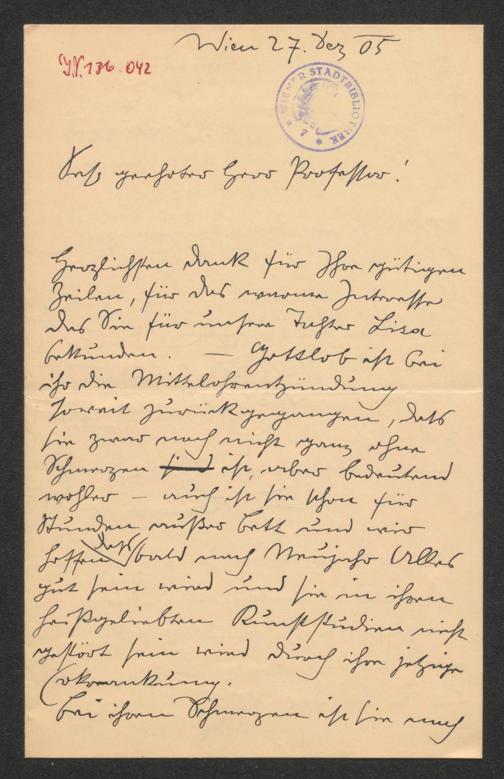 Wien 27. Dez 05
I.N. 136.042
WIENER STADTBIBLIOTHEK
Sehr geehrter Herr Professor!
Herzlichsten Dank für Ihre gütigen
Zeilen, für das warme Interesse
das Sie für unsere Tochter Lisa
bekunden. — Gottlob ist bei
ihr die Mittelohrentzündung
soweit zurückgegangen, dass
sie zwar noch nicht ganz ohne
Schmerzen ist, aber bedeutend
wohler – auch ist sie schon für
Stunden außer Bett und wir
hoffen dass bald nach Neujahr Alles
gut sein wird und sie in ihren
heißgeliebten Kunststudien nicht
gestört sein wird durch ihre jetzige
Erkrankung.
Bei ihren Schmerzen ist sie noch